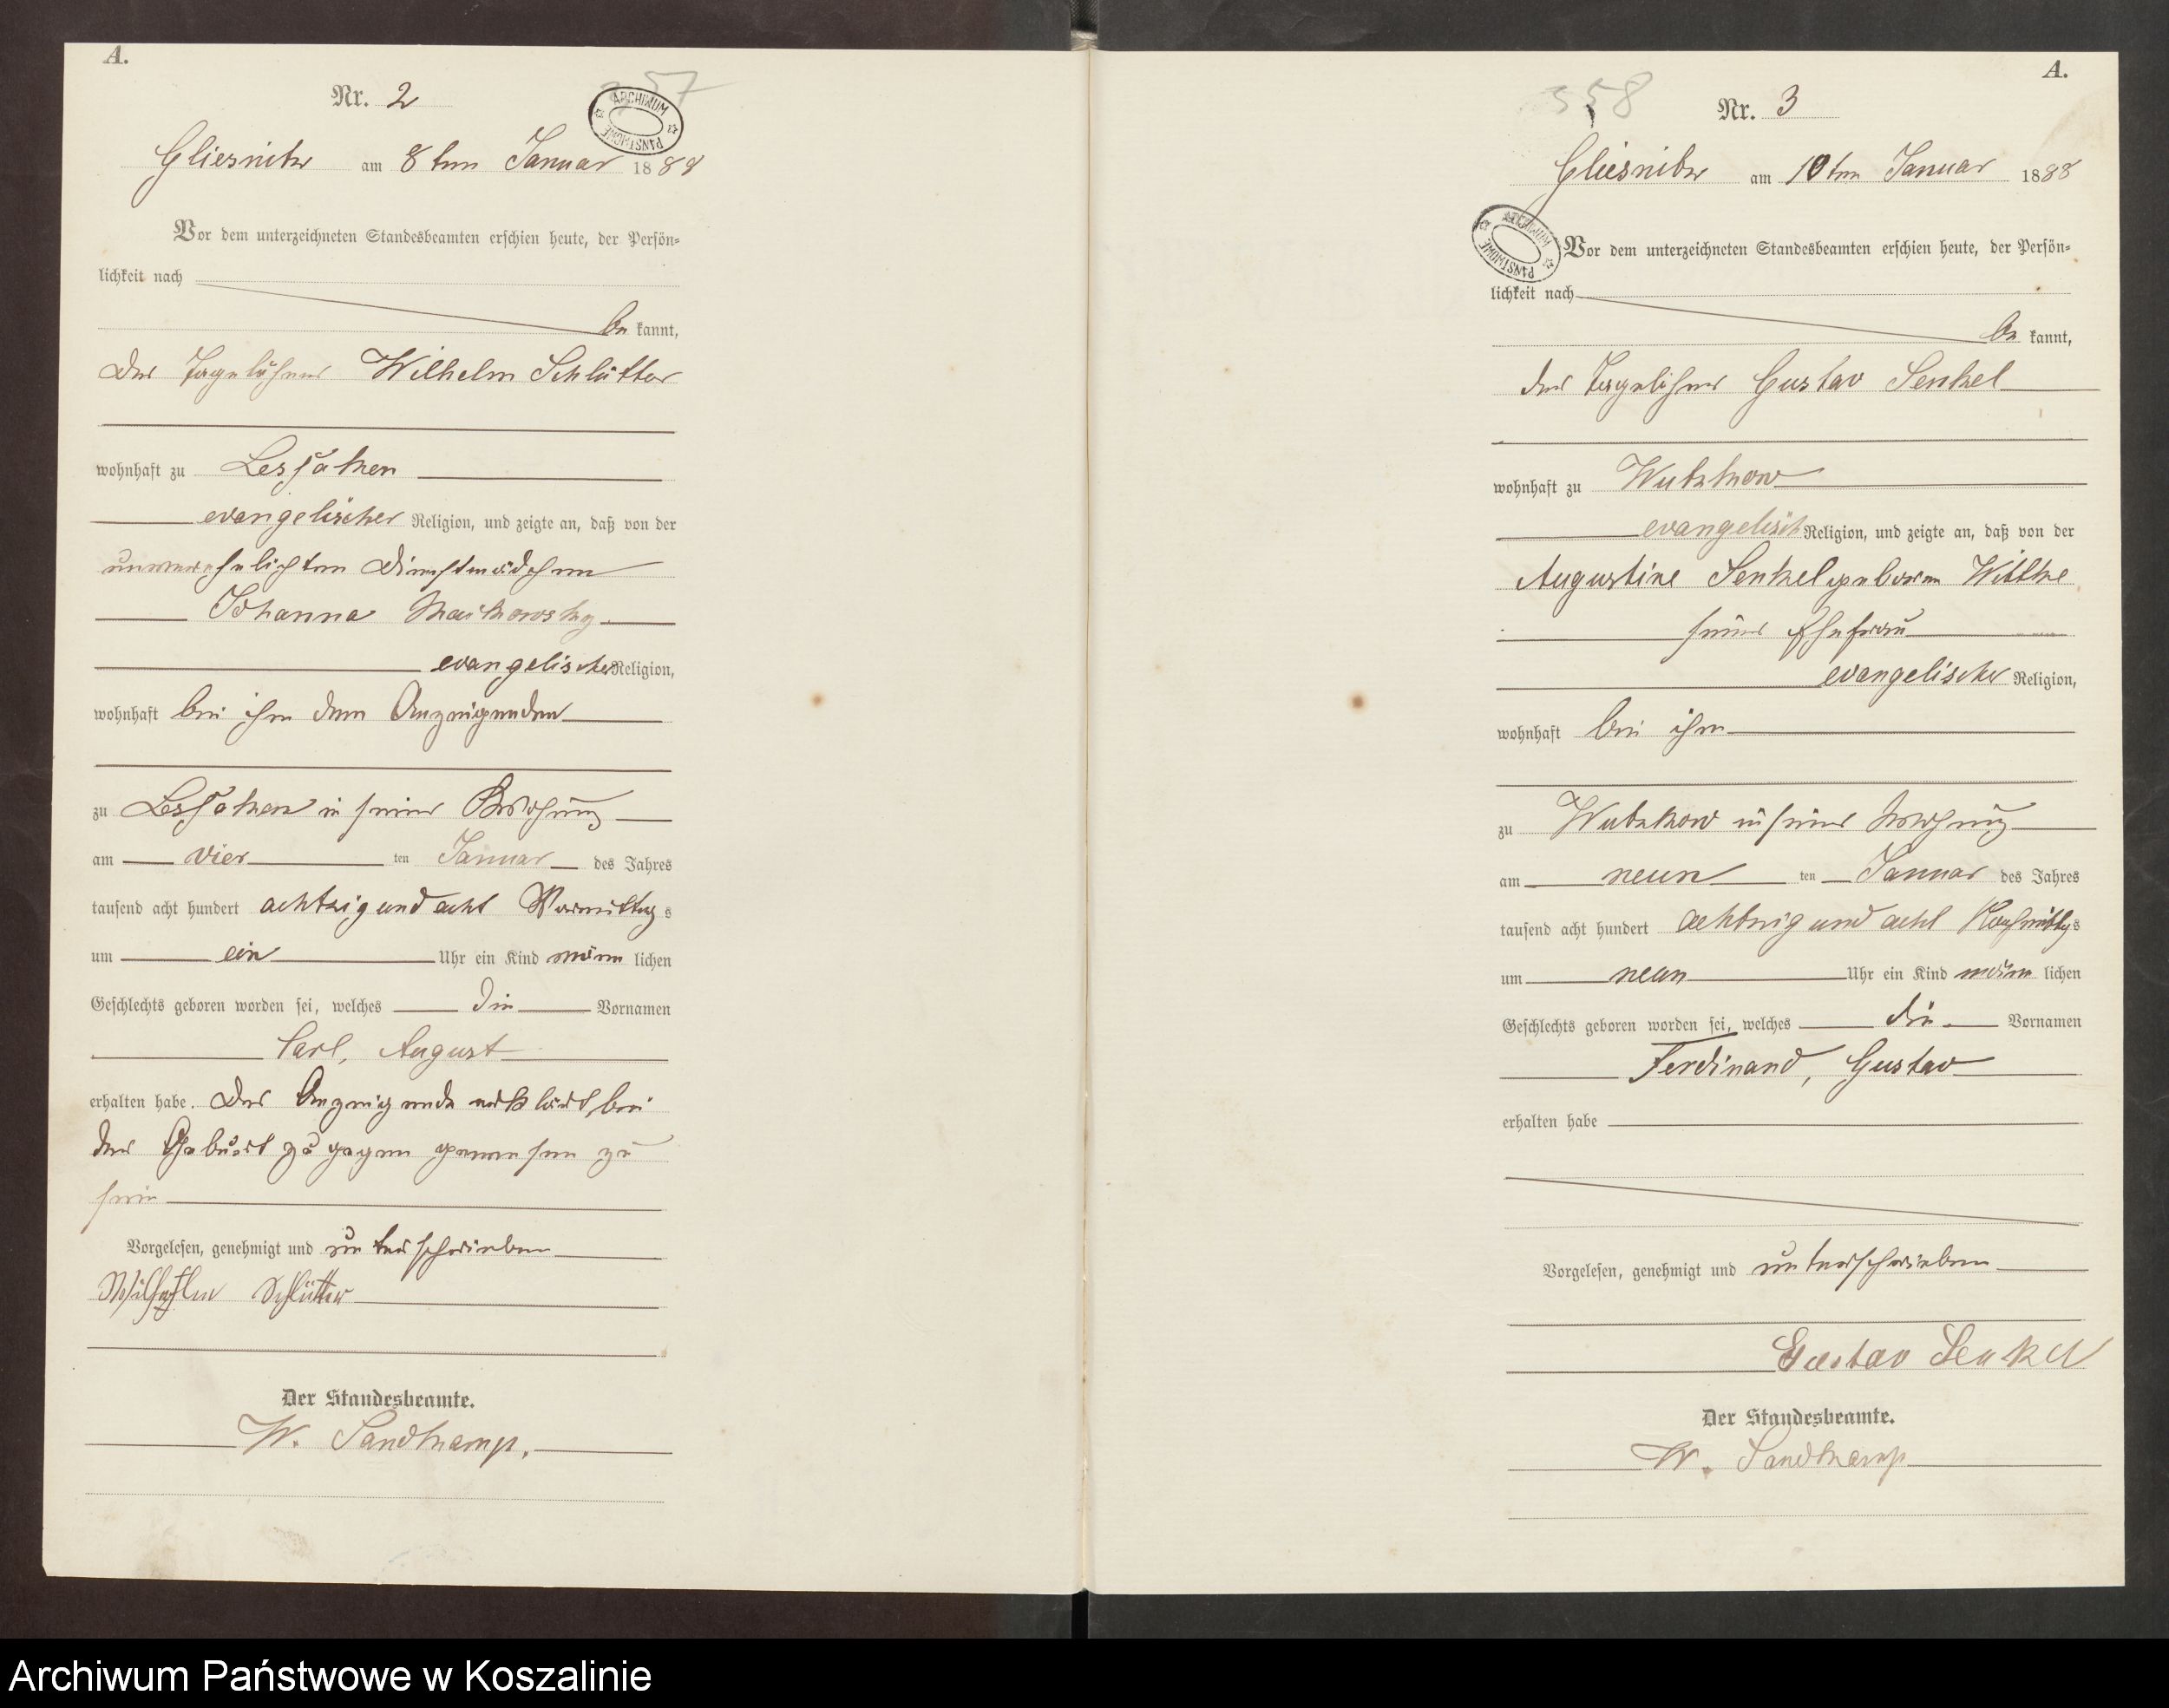 A.
Nr. 2
57
ARCHIWUM PAŃSTWOWE
Gliesnitz am 8ten Januar 1888
Vor dem unterzeichneten Standesbeamten erschien heute, der Persön=
lichkeit nach
be kannt,
der Tagelöhner Wilhelm Schlütter
wohnhaft zu Lessaken
evangelischer Religion, und zeigte an, daß von der
unverehelichten Dienstmädchen
Johanna
evangelischer Religion,
wohnhaft bei ihm dem Anzeigenden
zu Lessaken in seiner Wohnung
am vier ten Januar des Jahres
tausend acht hundert achtzig und acht Vormittags
um ein Uhr ein Kind männ lichen
Geschlechts geboren worden sei, welches die Vornamen
Carl, August
erhalten habe. Der Anzeigende erklärt bei
der Geburt zugegen gewesen zu
sein
Vorgelesen, genehmigt und unterschrieben
Wilhelm Schlütter
Der Standesbeamte.
W. Sandkamp.
A.
358
Nr. 3
Gliesnitz am 10ten Januar 1888
ARCHIWUM PAŃSTWOWE
Vor dem unterzeichneten Standesbeamten erschien heute, der Persön=
lichkeit nach
be kannt,
der Tagelöhner Gustav Senkel
wohnhaft zu Wutzkow
evangelisch Religion, und zeigte an, daß von der
Augustine Senkel geboren Wittke
seiner Ehefrau
evangelischer Religion,
wohnhaft bei ihm
zu Wutzkow in seiner Wohnung
am neun ten Januar des Jahres
tausend acht hundert achtzig und acht Nachmittags
um neun Uhr ein Kind männ lichen
Geschlechts geboren worden sei, welches die Vornamen
Ferdinand, Gustav
erhalten habe
Vorgelesen, genehmigt und unterschrieben
Gustav Senkel
Der Standesbeamte.
W. Sandkamp
Archiwum Państwowe w Koszalinie